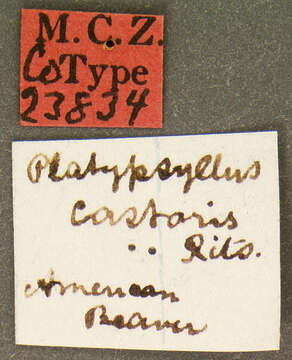 M.C.Z.
CoType
23834
Platypsyllus
Castoris
.. Rits.
American
Beaver